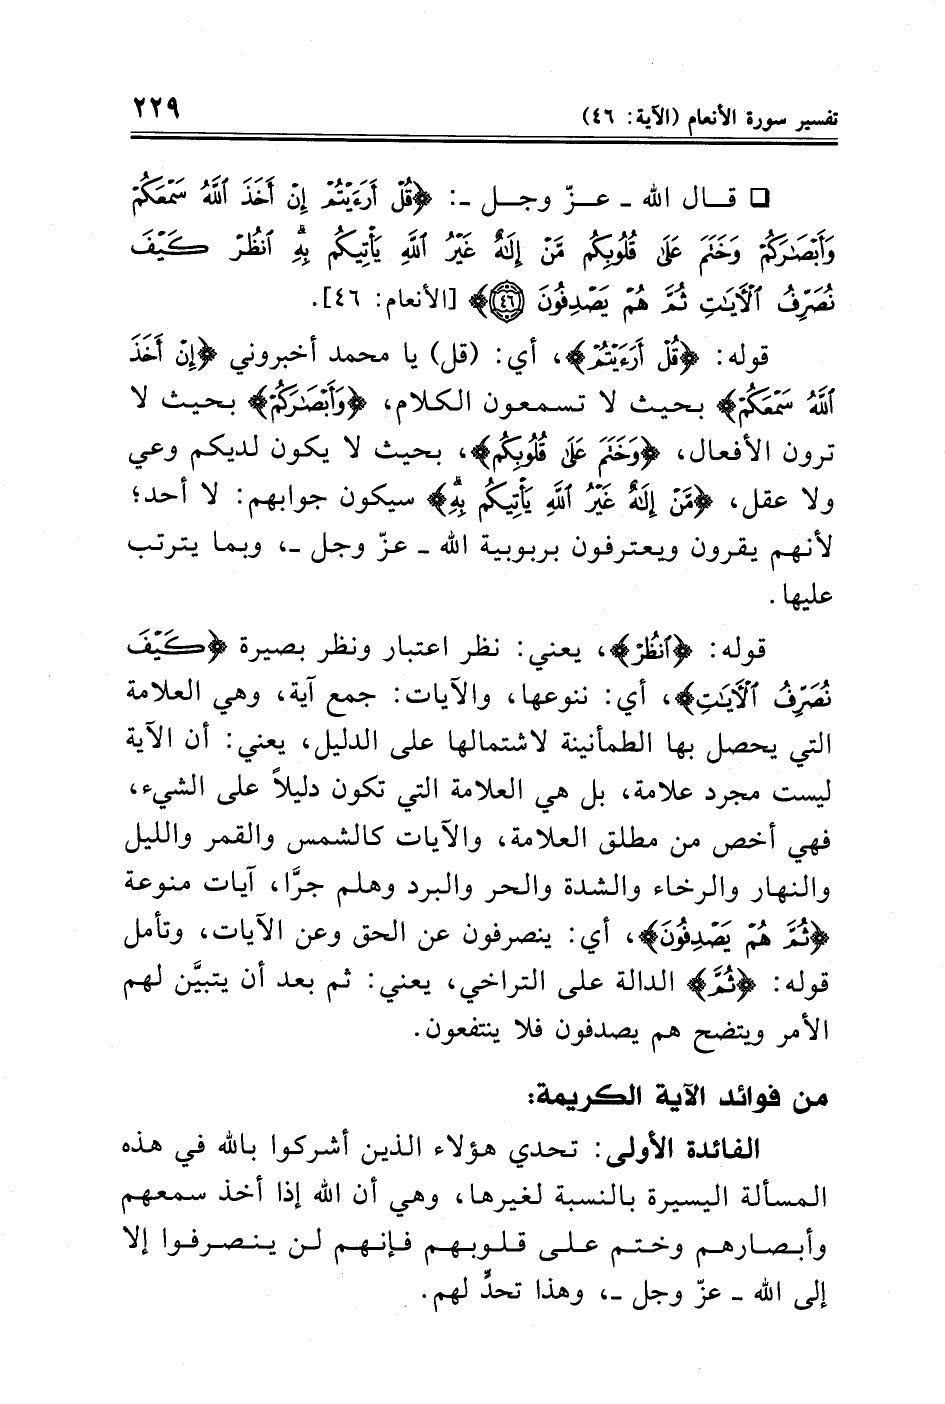 تفسير سورة الأنعام (الآية: ٤٦) ٢٢٩
❑ قـال الله ـ عـزّ وجـل ـ: ﴿قُلْ أَرَءَيْتُمْ إِنْ أَخَذَ ٱللَّهُ سَمْعَكُمْ
وَأَبْصَـٰرَكُمْ وَخَتَمَ عَلَىٰ قُلُوبِكُم مَّنْ إِلَـٰهٌ غَيْرُ ٱللَّهِ يَأْتِيكُم بِهِۗ ٱنظُرْ كَيْفَ
نُصَرِّفُ ٱلْـَٔايَـٰتِ ثُمَّ هُمْ يَصْدِفُونَ ٤٦﴾ [الأنعام: ٤٦].
قوله: ﴿قُلْ أَرَءَيْتُمْ﴾، أي: (قل) يا محمد أخبروني ﴿إِنْ أَخَذَ
ٱللَّهُ سَمْعَكُمْ﴾ بحيث لا تسمعون الكلام، ﴿وَأَبْصَـٰرَكُمْ﴾ بحيث لا
ترون الأفعال، ﴿وَخَتَمَ عَلَىٰ قُلُوبِكُم﴾، بحيث لا يكون لديكم وعي
ولا عقل، ﴿مَّنْ إِلَـٰهٌ غَيْرُ ٱللَّهِ يَأْتِيكُم بِهِۗ﴾ سيكون جوابهم: لا أحد؛
لأنهم يقرون ويعترفون بربوبية الله ـ عزّ وجل ـ، وبما يترتب
عليها.
قوله: ﴿ٱنظُرْ﴾، يعني: نظر اعتبار ونظر بصيرة ﴿كَيْفَ
نُصَرِّفُ ٱلْـَٔايَـٰتِ﴾، أي: ننوعها، والآيات: جمع آية، وهي العلامة
التي يحصل بها الطمأنينة لاشتمالها على الدليل، يعني: أن الآية
ليست مجرد علامة، بل هي العلامة التي تكون دليلاً على الشيء،
فهي أخص من مطلق العلامة، والآيات كالشمس والقمر والليل
والنهار والرخاء والشدة والحر والبرد وهلم جرًّا، آيات منوعة
﴿ثُمَّ هُمْ يَصْدِفُونَ﴾، أي: ينصرفون عن الحق وعن الآيات، وتأمل
قوله: ﴿ثُمَّ﴾ الدالة على التراخي، يعني: ثم بعد أن يتبيَّن لهم
الأمر ويتضح هم يصدفون فلا ينتفعون.
من فوائد الآية الكريمة:
الفائدة الأولى: تحدي هؤلاء الذين أشركوا بالله في هذه
المسألة اليسيرة بالنسبة لغيرها، وهي أن الله إذا أخذ سمعهم
وأبـصـارهـم وخـتـم عـلـى قـلـوبـهـم فـإنـهـم لـن يـنـصـرفـوا إلا
إلى الله ـ عزّ وجل ـ، وهذا تحدٍّ لهم.